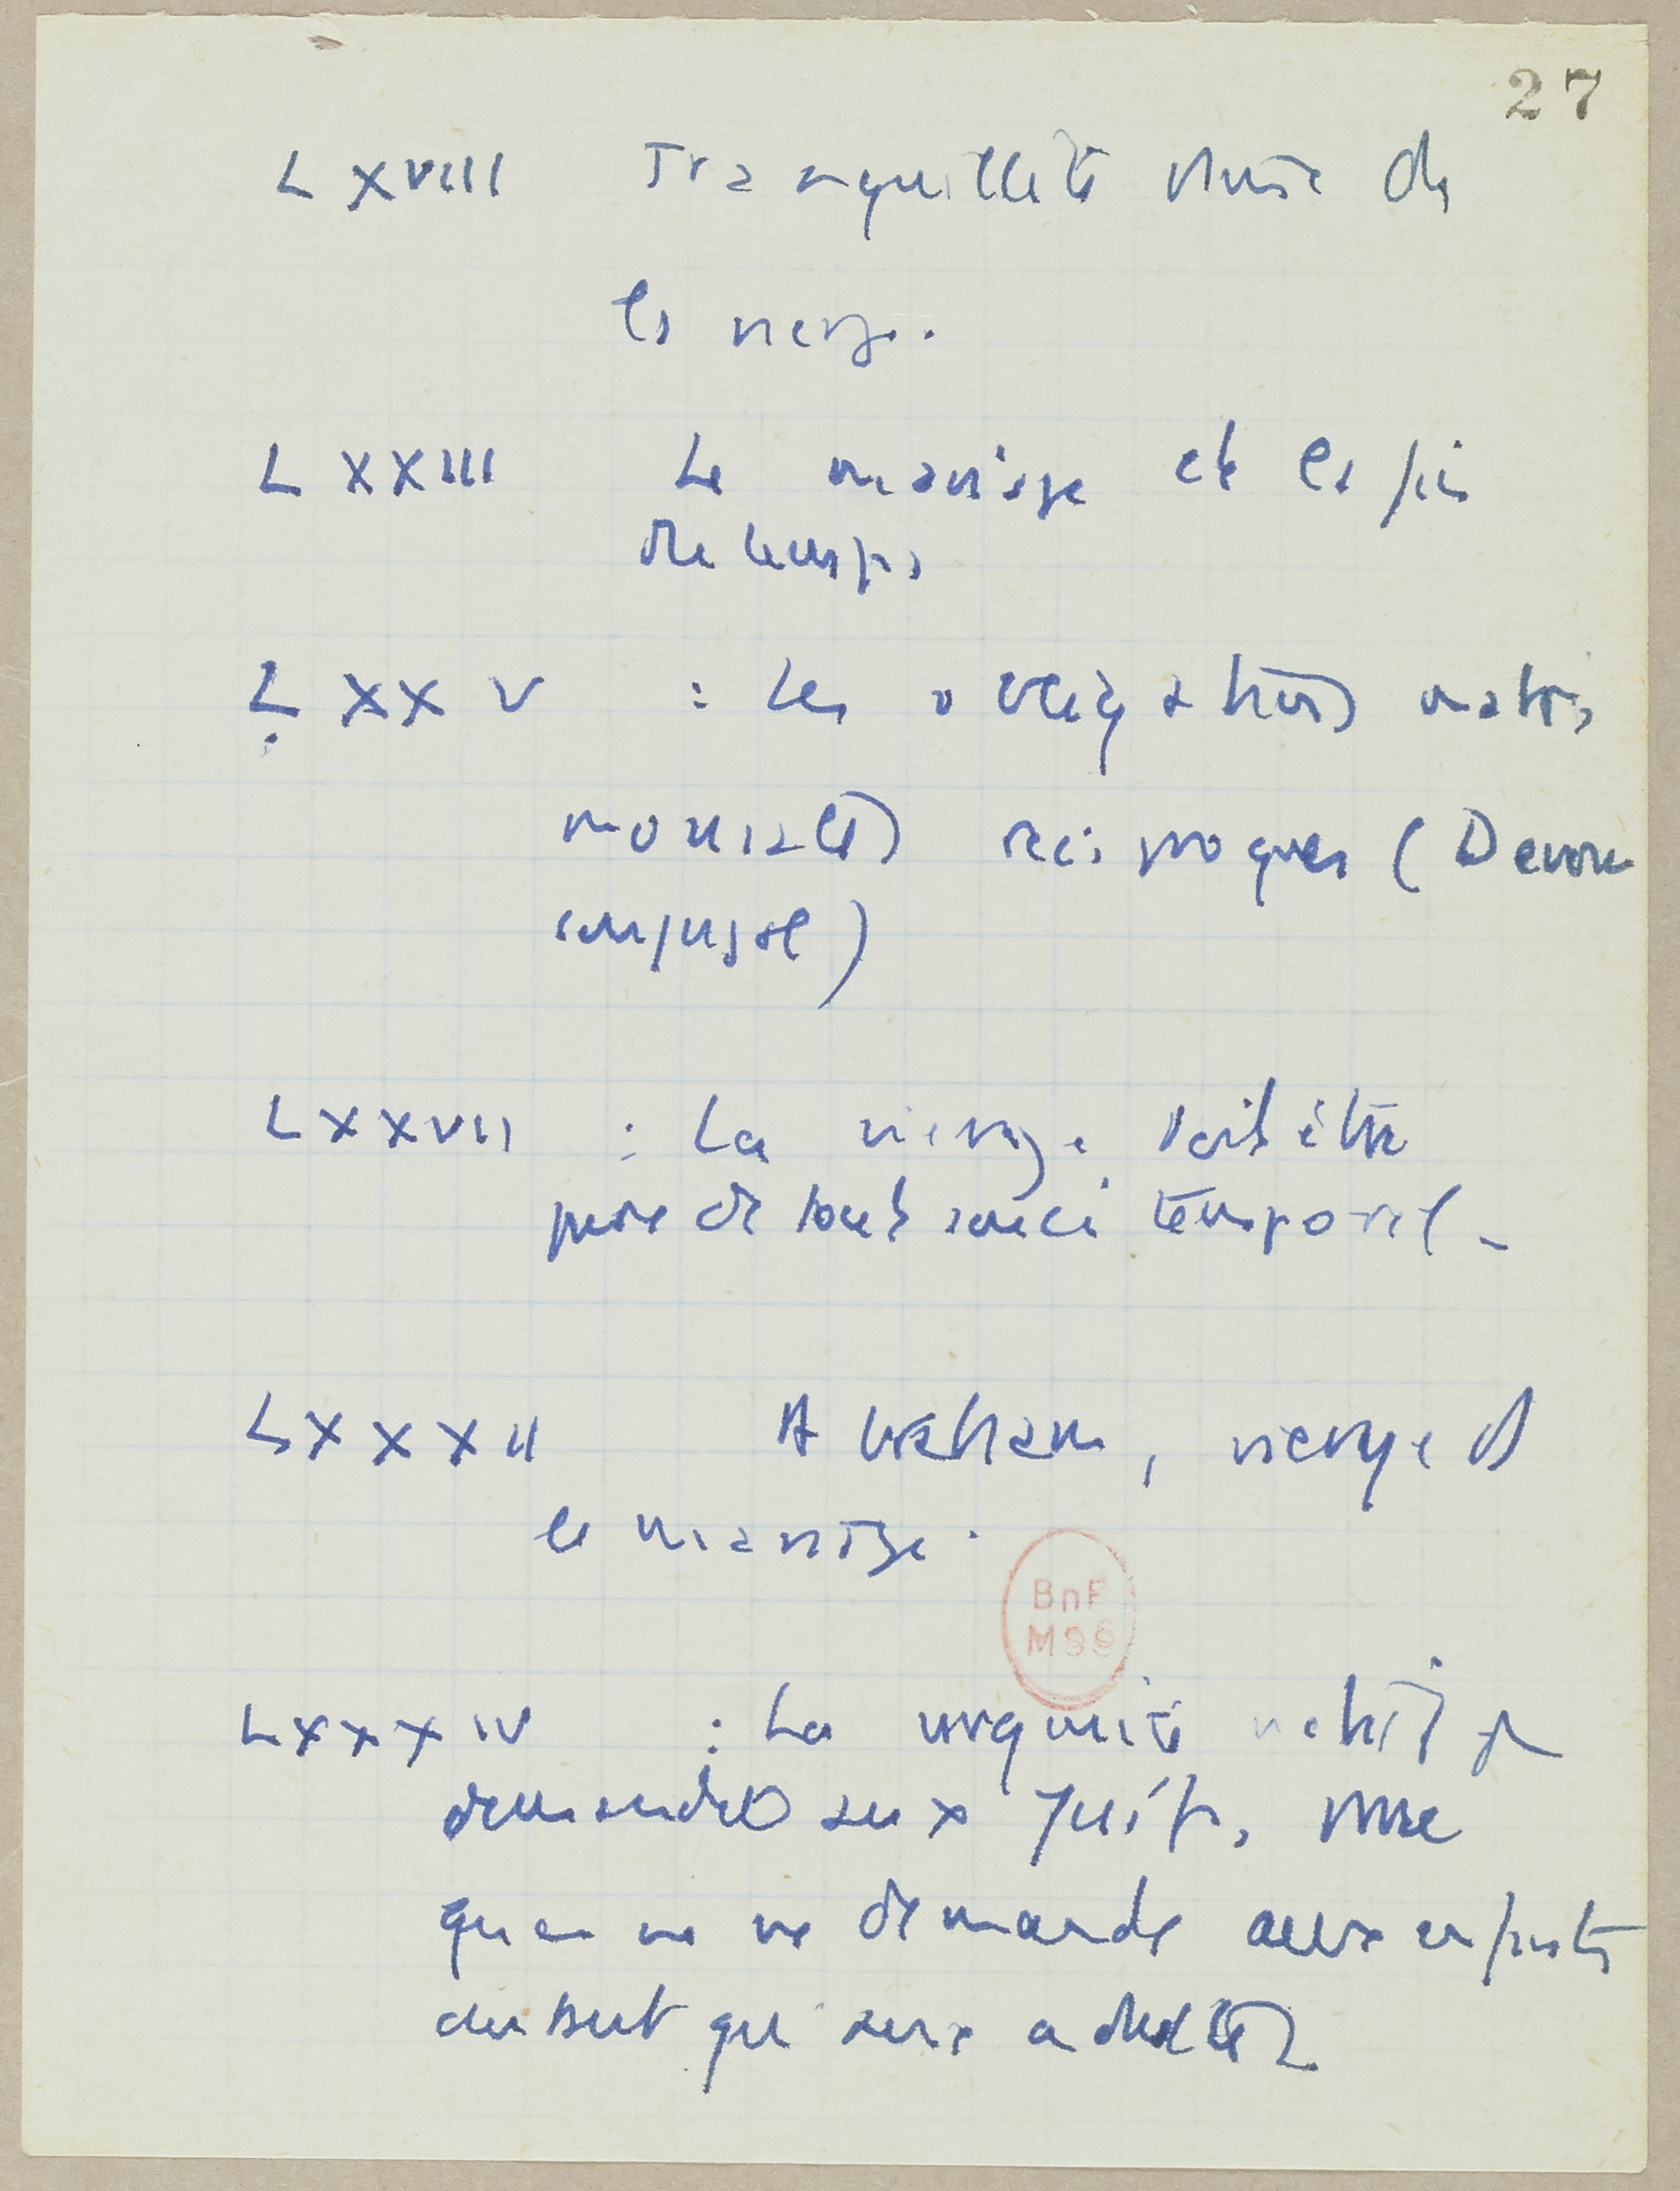 27
LXVIII Tranquillité divine de
la vierge.
LXXIII Le mariage et la fin
des temps
LXXV : Les obligations matri
moniales réciproques (Devoir
conjugal)
LXXVII : La vierge doit être
pure de tout souci temporel -
LXXXII Abraham, vierge ds
le mariage.
LXXXIV : La virginité n'était pas
demandée aux Juifs,
qu'on ne demande aux enfants
autant qu'aux adultes
BnF
MSS